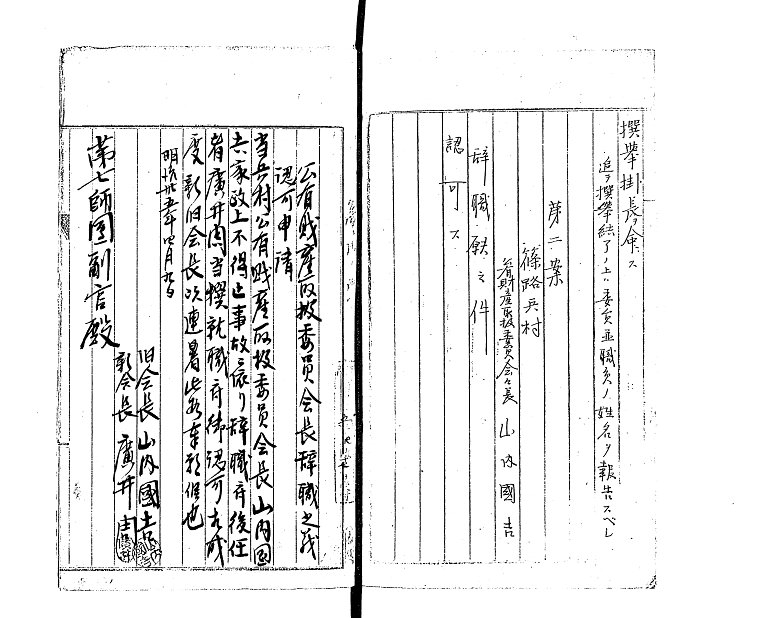 撰挙掛長ヲ命ス
追テ撰挙結了ノ上ハ委員並職務ノ姓名ヲ報告スベシ
第二案
篠路兵村
有財産取扱委員会々長 山内國吉
辞職願之件
認可ス
公有財産取扱委員会長辞職之義
認可申請
当兵村公有財産取扱委員会長山内國
吉家政上不得止事故ニ依リ辞職ニ付後任
者廣井周当撰就職ニ付御認可相成
度新旧会長以連署此段奉願候也
明治廿五年四月九日
旧会長 山内國吉
新会長 廣井
第七師團副官殿